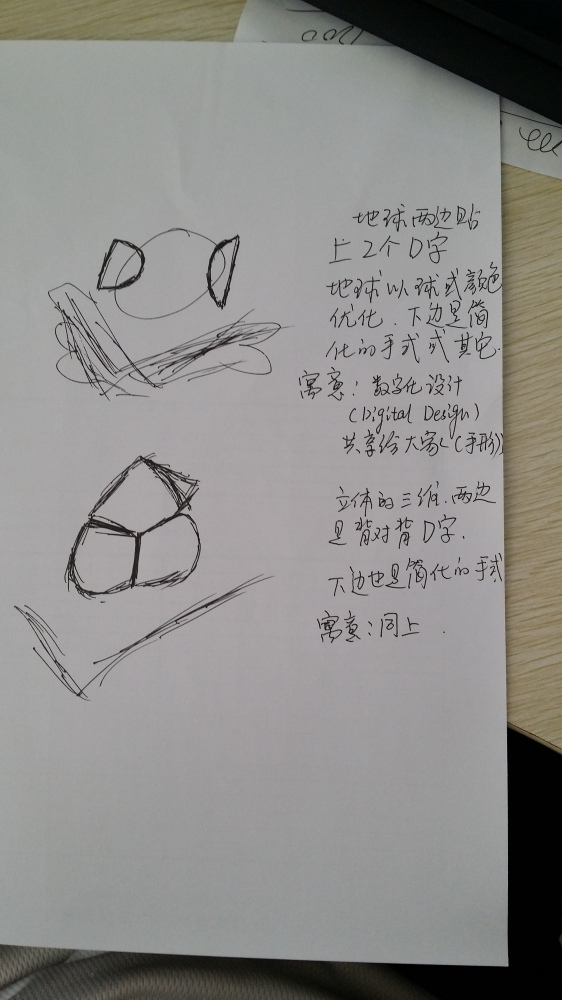 地球两边贴
上2个D字
地球以球或颜色
优化.下边是简
化的手式或其它.
寓意：数字化设计
(Digital Design)
共享给大家(手形)
立体的三维.两边
是背对背D字.
下边也是简化的手式
寓意：同上.